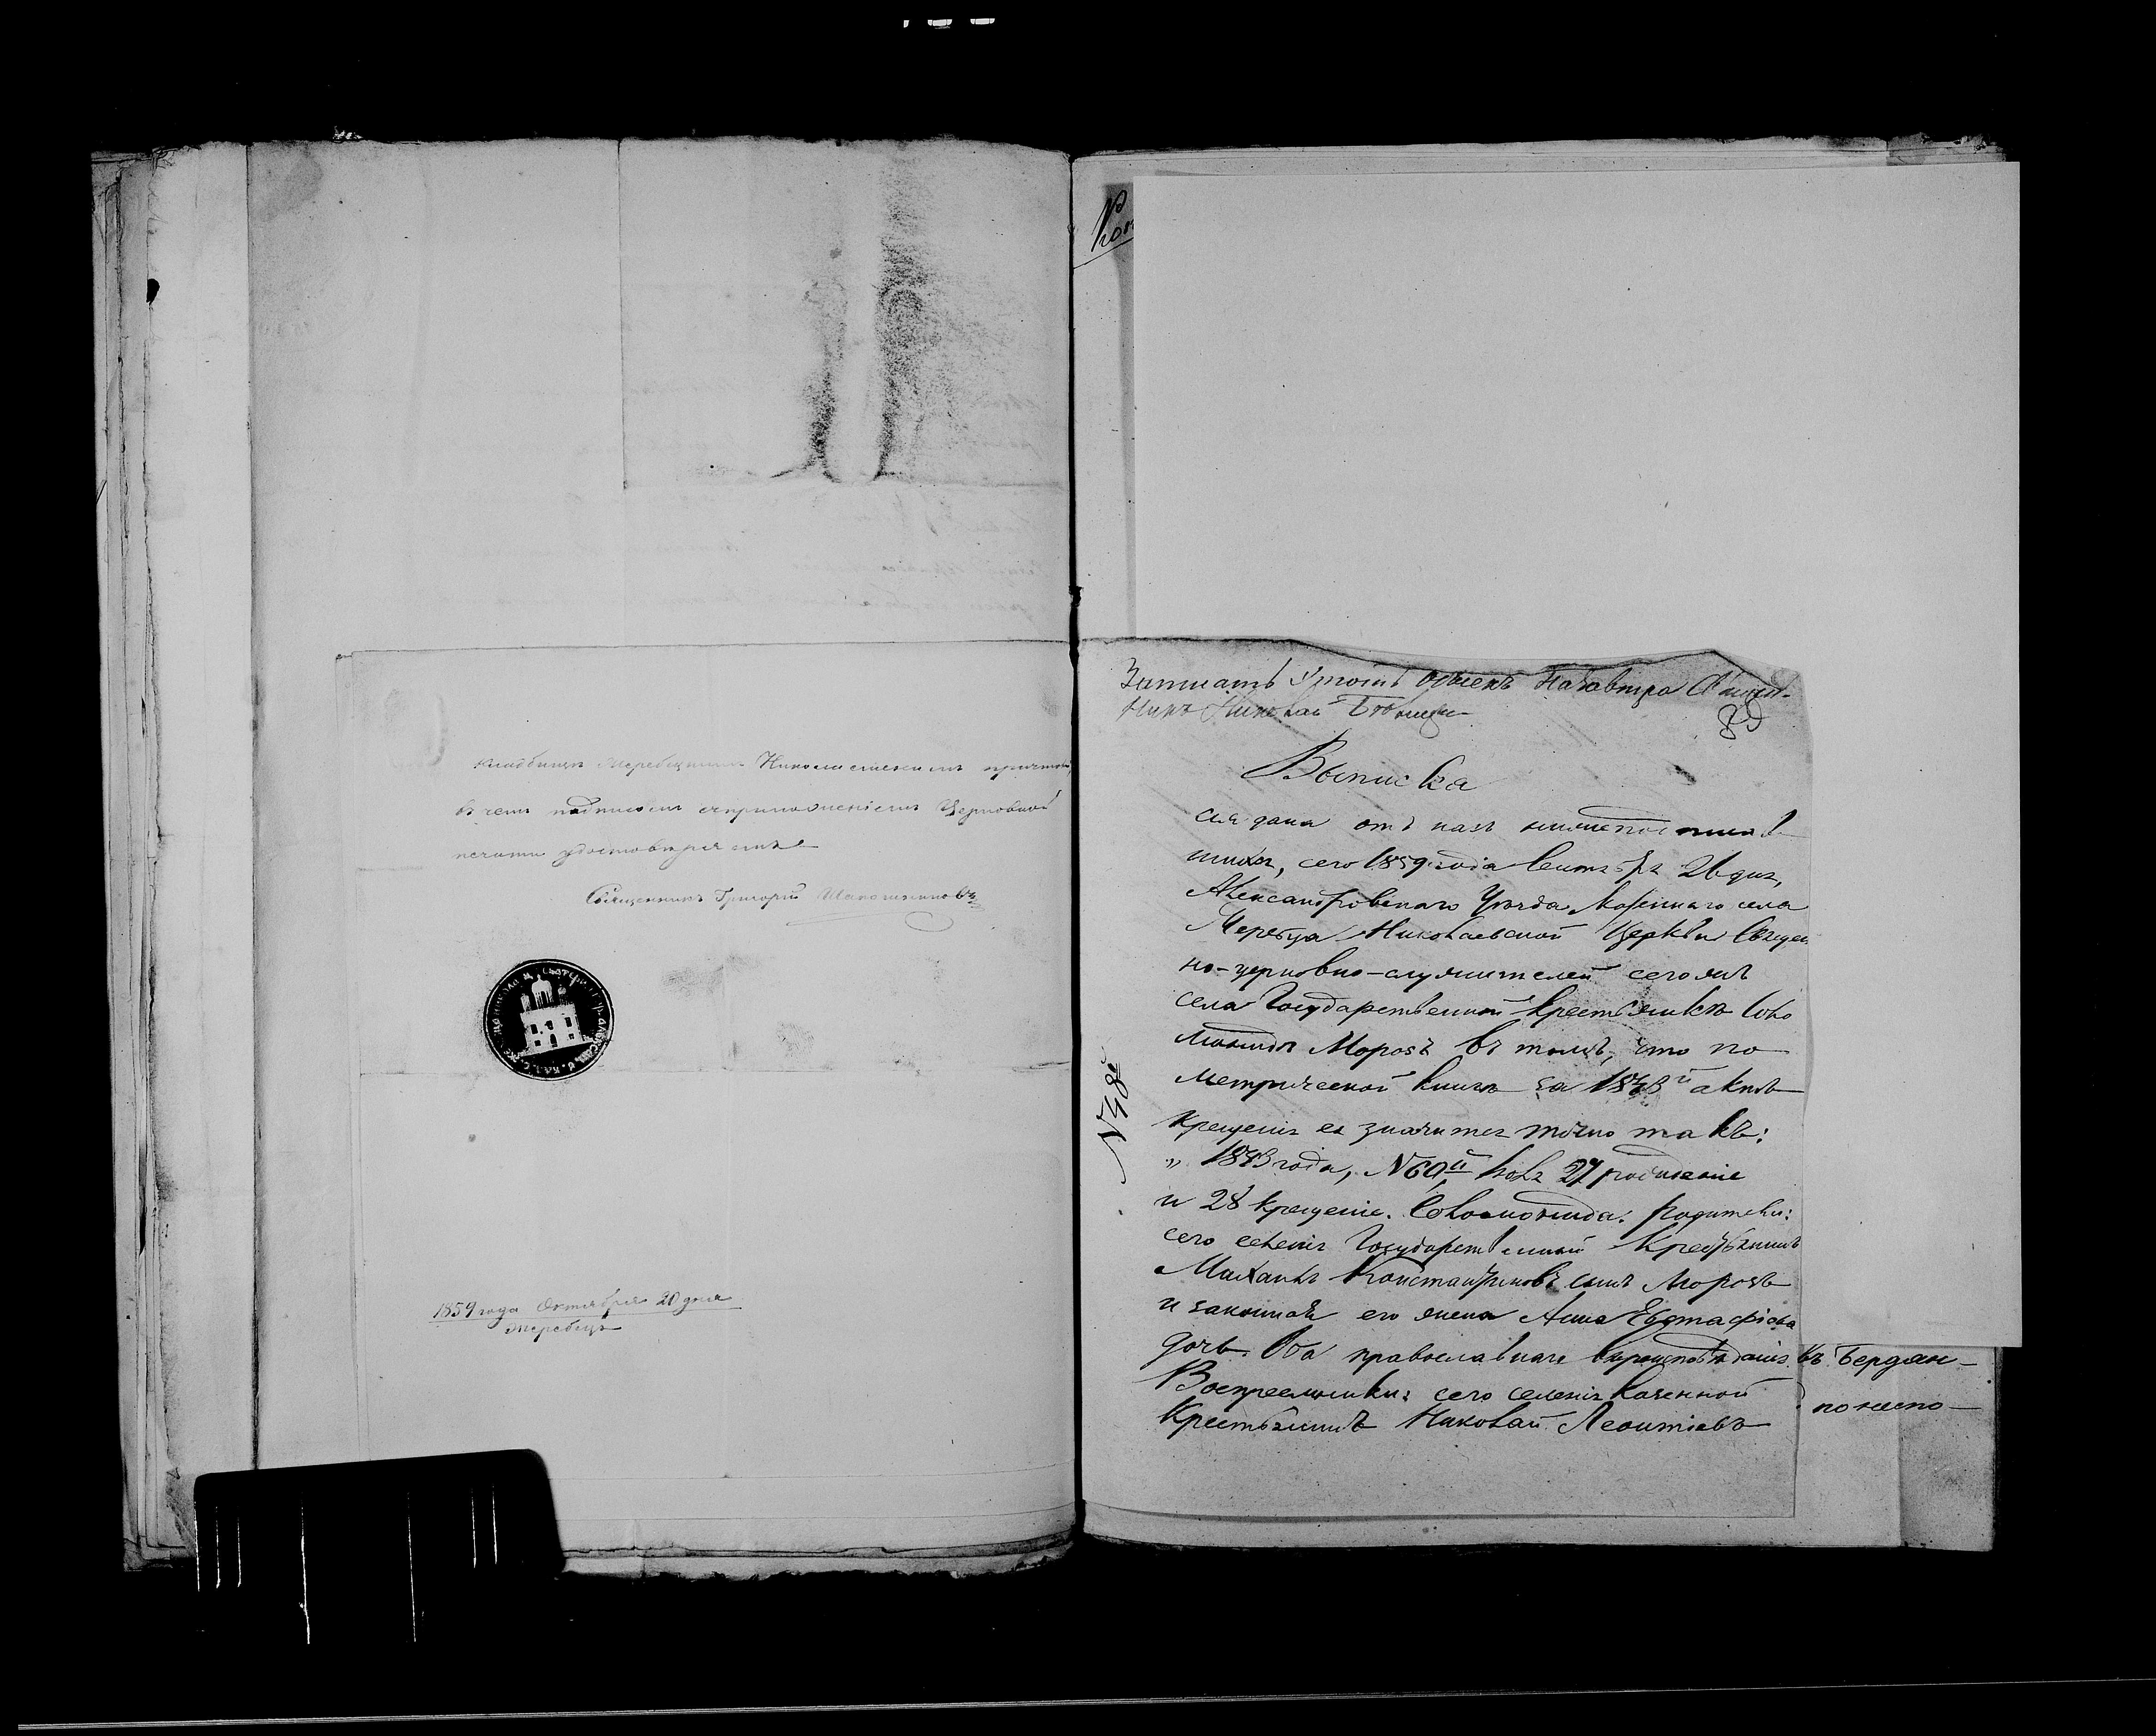 кладбищѣ Жеребецкимъ Николаевскимъ причтомъ,
въ чемъ подписомъ съ приложеніемъ Церковной
печати удостовѣряемъ
Священникъ Григорій
1859 года Октября 20 дня
Жеребецъ
Записать
Николай
89
Выписка
сія дана отъ насъ нижеподписав-
шихся, сего 1859 года Сентября 26 дня,
Александровскаго Уѣзда Казеннаго села
Жеребца Николаевской Церкви Священ
но-церковно-служителей сего жъ
села Государственной крестьянкѣ Соло
монидѣ Морозъ въ томъ, что по
Метрической книгѣ за 1843й актъ
крещенія ея значится точно такъ:
„ 1843 года, № 60й, Іюля 27 рожденіе
и 28 крещеніе. Соломонида. родители:
сего селенія Государственный Крестьянинъ
Михаилъ Константиновъ сынъ Морозъ
и законная его жена Анна Евстафіова
дочь. Оба православнаго вѣроисповѣданія.
Воспреемники: сего селенія казенной
Крестьянинъ Николай Леонтіевъ
№ 48й
въ Бердян-
по неспо-